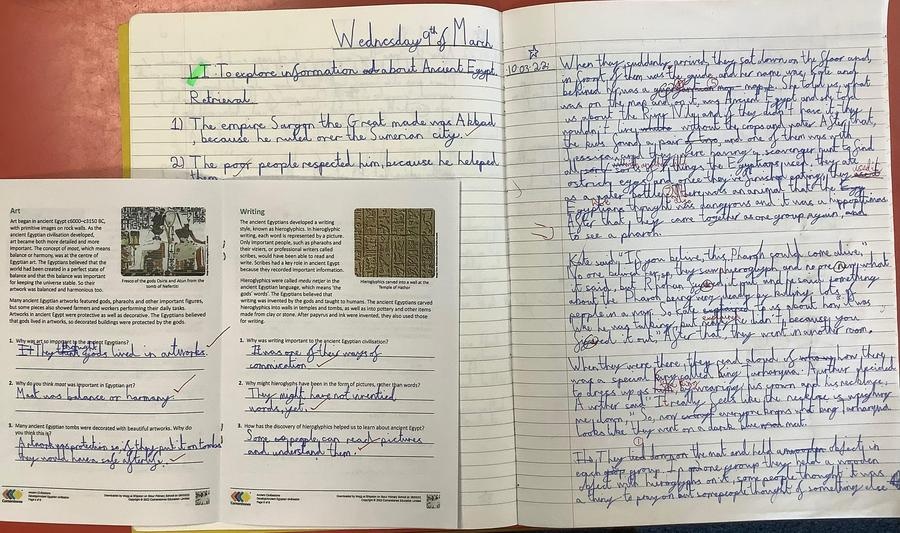 Wednesday 9th of March
LI: To explore information about Ancient Egypt
Retrieval
1) The empire Sargon the Great made was Akkad
, because he ruled over the Sumerian city.
2) The poor people respected him, because he heleped
them
Art
Art began in ancient Egypt c6000–c3150 BC,
with primitive images on rock walls. As the
ancient Egyptian civilisation developed,
art became both more detailed and more
important. The concept of maat, which means
balance or harmony, was at the centre of
Egyptian art. The Egyptians believed that the
world had been created in a perfect state of
balance and that this balance was important
for keeping the universe stable. So their
artwork was balanced and harmonious too.
Fresco of the gods Osiris and Atum from the
tomb of Nefertiti
Many ancient Egyptian artworks featured gods, pharaohs and other important figures,
but some pieces also showed farmers and workers performing their daily tasks.
Artworks in ancient Egypt were protective as well as decorative. The Egyptians believed
that gods lived in artworks, so decorated buildings were protected by the gods.
1. Why was art so important to the ancient Egyptians?
They thought gods lived in artworks.
2. Why do you think maat was important in Egyptian art?
Maat was balance or harmony
3. Many ancient Egyptian tombs were decorated with beautiful artworks. Why do
you think this is?
Artwork was protection so if they put it on tombs
they would have a safe afterlife.
Writing
The ancient Egyptians developed a writing
style, known as hieroglyphics. In hieroglyphic
writing, each word is represented by a picture.
Only important people, such as pharaohs and
their viziers, or professional writers called
scribes, would have been able to read and
write. Scribes had a key role in ancient Egypt
because they recorded important information.
Hieroglyphics were called medu netjer in the
ancient Egyptian language, which means 'the
gods' words'. The Egyptians believed that
writing was invented by the gods and taught to humans. The ancient Egyptians carved
hieroglyphics into walls in temples and tombs, as well as into pottery and other items
made from clay or stone. After papyrus and ink were invented, they also used those
for writing.
Hieroglyphics carved into a wall at the
Temple of Hathor
1. Why was writing important to the ancient Egyptian civilisation?
It was one of they ways of
communication
2. Why might hieroglyphs have been in the form of pictures, rather than words?
They might have not invented
words, yet.
3. How has the discovery of hieroglyphics helped us to learn about ancient Egypt?
Some people, can read pictures
and understand them.
Cornerstones
Ancient Civilisations
Cornerstones
Ancient Civilisations
10.03.22
When they suddenly arrived, they sat down on the floor and,
in front of them was the guide, and her name was, Kate and
behined her was a map. She told us, what
was on the map and on it, was Ancient Egypt and she told
us about the River Nily and if they didn't have it they
wouldn't live without the crops and water. After that,
the kids found a pair of two, and one of them was with
Jessica, and they were having a scavenger hunt to find
all sorts of things the Egyptians used, they ate
ostrich eggs and once they've finished eating, they used it
as a water bottle. There was an animal that the
Egyptians thought was dangerous and it was a hippopotimas.
After that, they came together as one group again, and
to see a pharoh.
Kate said "If you believe, this Pharoh could come alive,"
No one believed her, they saw hieroglyph, and no one knew what
it said, but Rohan it out and said something
about the Pharoh being very deadly by bullying lots of
people in a war. So Kate explained to us about how it was
like he was talking, but really he didn't, because you
it out," After that, they went in another room.
When they were there, they read aloud of how there
was a special king called king Tutankhamun. Arthur decided
to dress up as the king by wearing his crown and his necklace.
Arthur said "It really feels like the necklace is weighing
me down," So, now everyone knows what king Tutankhamun
looks like they went on a dark blue mat.
They on the mat and held a object in
each group. In one group they held a wooden
object with hieroglyphs on it, some people thought it was
a thing to pray on but some people thought of something else